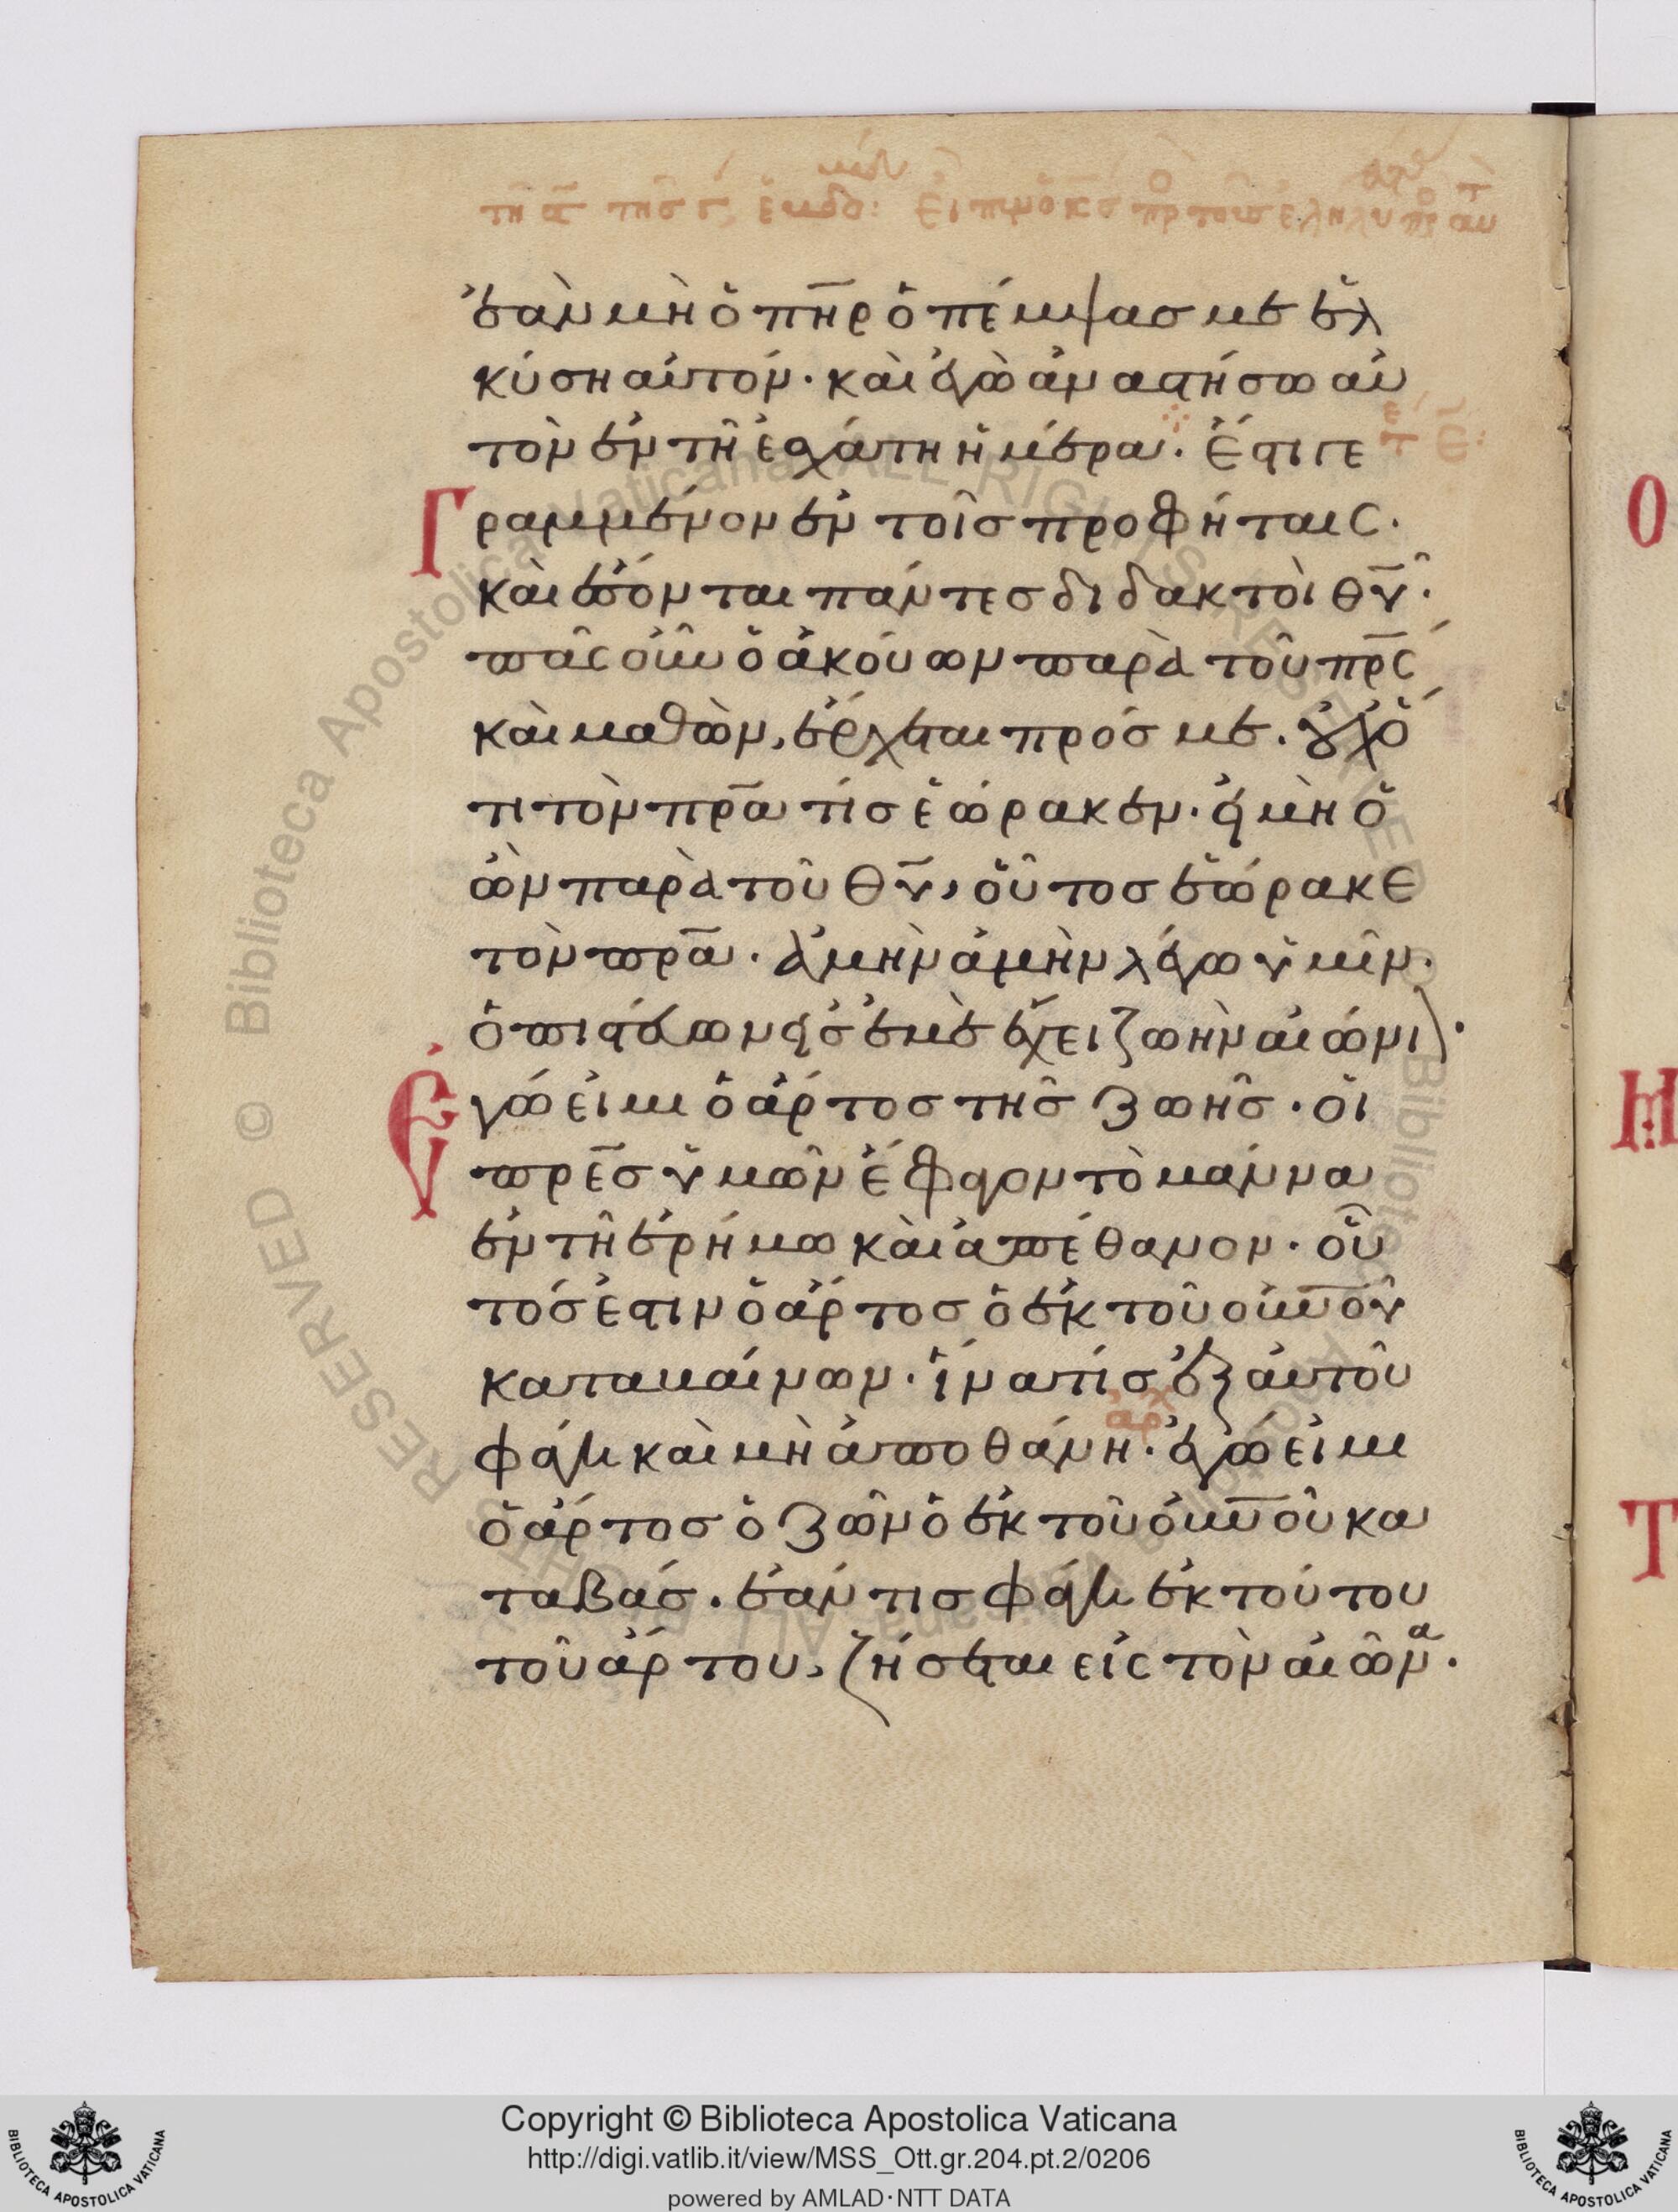 τη π τησ ς εβδο: Ειπεν ο κσ προσ τουσ εληλυθοτασ
ἐὰν μὴ ὁ πηρ ὁ πέμψασ με ἑλ
κύση αὐτόν· καὶ ἐγὼ ἀναστήσω αὐ
τὸν ἐν τῆ ἐσχάτη ἡμέρα. Ἔστι γε
Γραμμένον ἐν τοῖσ προφήταις·
καὶ ἔσονται πάντεσ διδακτοὶ θυ·
πᾶς οὖν ὁ ἀκούων παρὰ τοῦ πρς
καὶ μαθὼν, ἔρχεται πρόσ με. οὐχ ὅ
τι τὸν πρα τίσ ἑώρακεν· εἰ μὴ ὁ
ὢν παρὰ τοῦ θυ, οὗτοσ ἑώρακε
τὸν πρα. ἀμὴν ἀμὴν λέγω ὑμῖν·
ὁ πιστεύων εἰσ ἐμὲ ἔχει ζωὴν αἰώνι)·
Ἐγώ εἰμι ὁ ἄρτοσ τῆσ ζωῆσ· οἱ
πρεσ ὑμῶν ἔφαγον τὸ μάννα
ἐν τῆ ἐρήμω καὶ ἀπέθανον· οὗ
τόσ ἐστιν ὁ ἄρτοσ ὁ ἐκ τοῦ ουνου
καταβαίνων· ἵνα τίσ ἐξ αὐτοῦ
φάγη καὶ μὴ ἀποθάνη· ἐγώ εἰμι
ὁ ἄρτοσ ὁ ζῶν ὁ ἐκ τοῦ ουνου κα
ταβάσ. ἐάν τισ φάγη ἐκ τούτου
τοῦ ἄρτου, ζήσεται εἰς τὸν αἰῶνα.
αρχ
Ο
Μ
Τ
© Biblioteca Apostolica Vaticana ALL RIGHTS RESERVED
Copyright © Biblioteca Apostolica Vaticana
http://digi.vatlib.it/view/MSS_Ott.gr.204.pt.2/0206
powered by AMLAD·NTT DATA
BIBLIOTECA APOSTOLICA VATICANA
BIBLIOTECA APOSTOLICA VATICANA